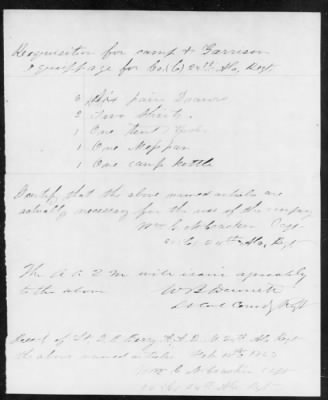 Requisition for camp & Garrison
equippage for Co. (C) 24th Ala, Regt
6 Six pair Drawers
2 Two Shirts
1 One Tent
1 One Mess pan
1 One camp kettle
I certify that the above named articles are
actually necessary for the use of the company
Wm Capt
24th Ala, Regt
The A. Q. M will issue agreeably
to the above
Lt Col Comdg Regt
Recd of Lt A. Q. M 24th Ala Regt
the above named articles Feb
Wm Capt
24th Ala Regt